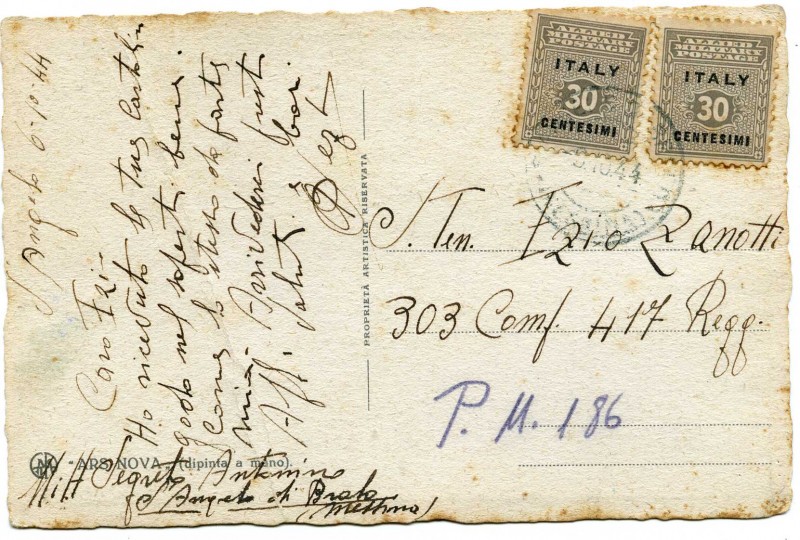 S. Angelo 6-10-44
Caro Ezi-
Ho ricevuto la tua Cartolina
godo nel saperti bene
Come lo stesso da parte
mia- Arrivederci presto
Aff. Saluti
PROPRIETÀ ARTISTICA RISERVATA
ARS NOVA - (dipinta a mano).
Mitt Segreto Antonino
S Angelo di Brolo
(Messina)
ALLIED MILITARY POSTAGE
ITALY
30
CENTESIMI
ALLIED MILITARY POSTAGE
ITALY
30
CENTESIMI
10.44
S. Ten. Ezio Zanotti
303 Comp. 417 Regg.
P. M. 186